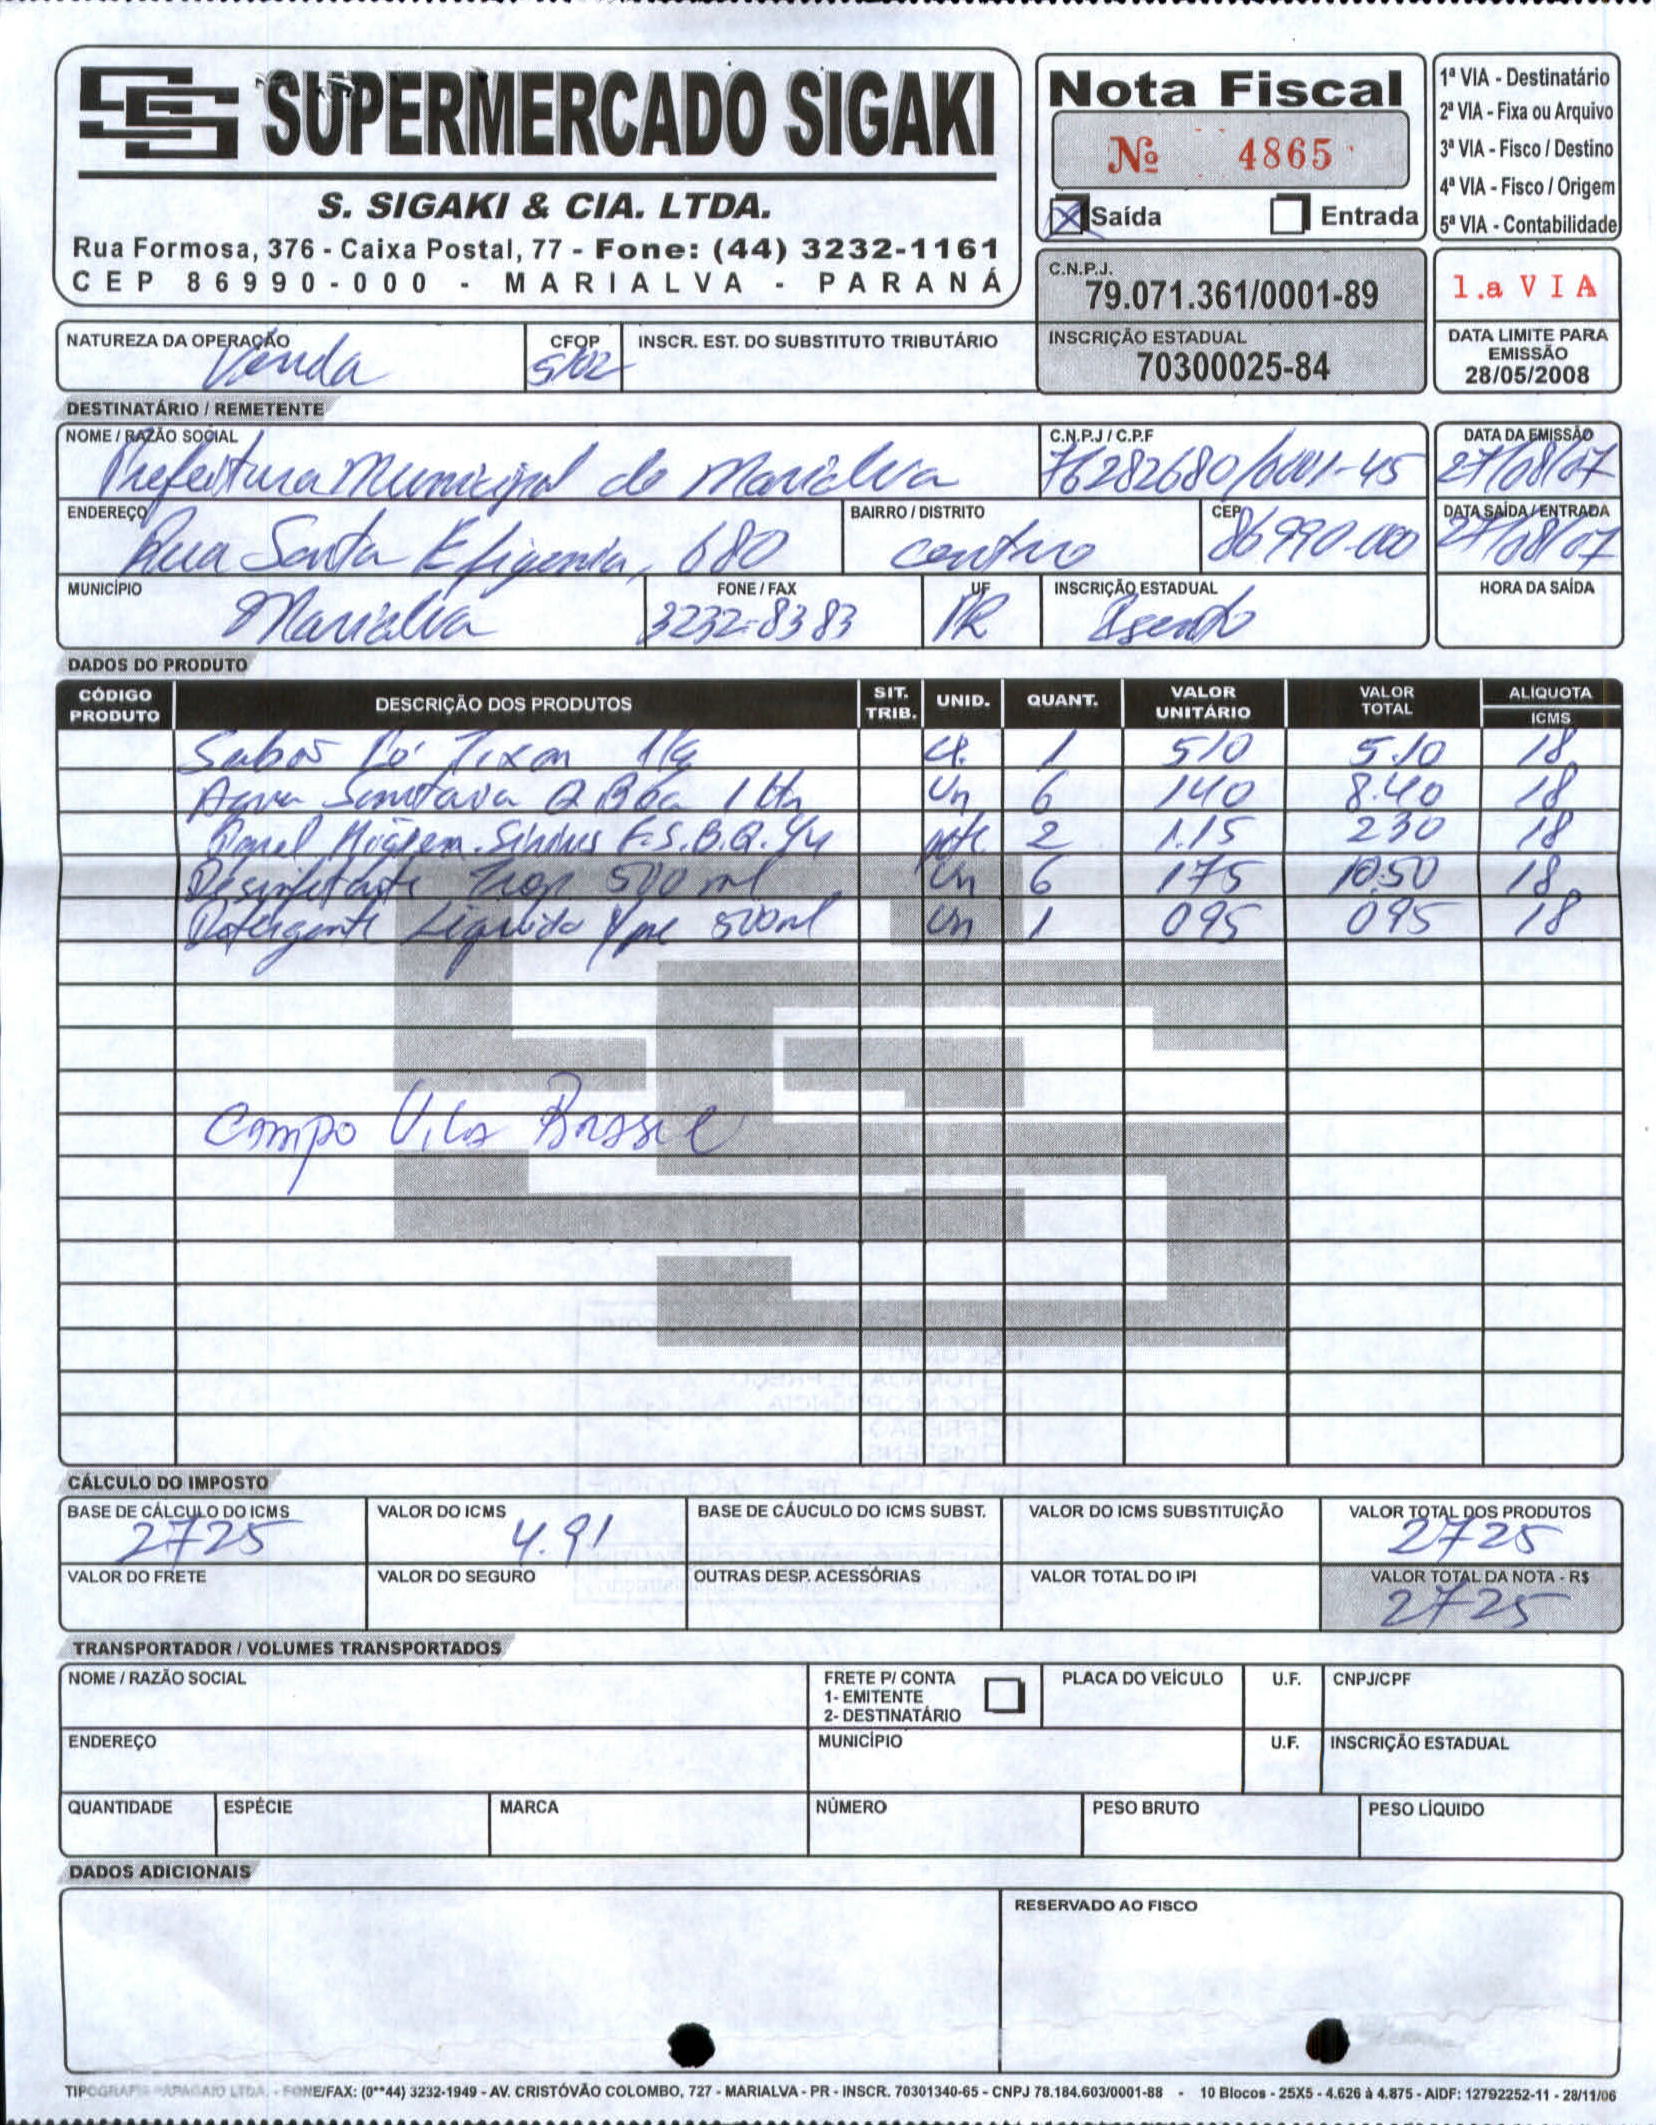 SUPERMERCADO SIGAKI
S. SIGAKI & CIA. LTDA.
Rua Formosa, 376 - Caixa Postal, 77 - Fone: (44) 3232-1161
CEP 86990-000 - MARIALVA - PARANÁ
Nota Fiscal
Nº 4865
Saída Entrada
1ª VIA - Destinatário
2ª VIA - Fixa ou Arquivo
3ª VIA - Fisco / Destino
4ª VIA - Fisco / Origem
5ª VIA - Contabilidade
C.N.P.J.
79.071.361/0001-89
1.a VIA
INSCRIÇÃO ESTADUAL
70300025-84
DATA LIMITE PARA
EMISSÃO
28/05/2008
NATUREZA DA OPERAÇÃO CFOP INSCR. EST. DO SUBSTITUTO TRIBUTÁRIO
Venda 5102
DESTINATÁRIO / REMETENTE
NOME / RAZÃO SOCIAL C.N.P.J / C.P.F DATA DA EMISSÃO
Prefeitura Municipal de Marialva 76282680/0001-45 27/08/07
ENDEREÇO BAIRRO / DISTRITO CEP DATA SAÍDA / ENTRADA
Rua Santa Efigenia, 680 centro 86990-000 27/08/07
MUNICÍPIO FONE / FAX UF INSCRIÇÃO ESTADUAL HORA DA SAÍDA
Marialva 3232-8383 PR Isento
DADOS DO PRODUTO
CÓDIGO PRODUTO DESCRIÇÃO DOS PRODUTOS SIT. TRIB. UNID. QUANT. VALOR UNITÁRIO VALOR TOTAL ALÍQUOTA ICMS
Sabão Pó Tixan 1kg 1 510 5.10 18
Agua Sanitaria Q Boa 1 Ltr Un 6 140 8.40 18
Papel Higiem. F.S. 2 1.15 230 18
Desinfetante 500 ml Un 6 175 10.50 18
Detergente Liquido Ype 500ml Un 1 095 095 18
Campo Vila Brasil
CÁLCULO DO IMPOSTO
BASE DE CÁLCULO DO ICMS VALOR DO ICMS BASE DE CÁUCULO DO ICMS SUBST. VALOR DO ICMS SUBSTITUIÇÃO VALOR TOTAL DOS PRODUTOS
2725 4.91 2725
VALOR DO FRETE VALOR DO SEGURO OUTRAS DESP. ACESSÓRIAS VALOR TOTAL DO IPI VALOR TOTAL DA NOTA - R$
2725
TRANSPORTADOR / VOLUMES TRANSPORTADOS
NOME / RAZÃO SOCIAL FRETE P/ CONTA 1- EMITENTE 2- DESTINATÁRIO PLACA DO VEÍCULO U.F. CNPJ/CPF
ENDEREÇO MUNICÍPIO U.F. INSCRIÇÃO ESTADUAL
QUANTIDADE ESPÉCIE MARCA NÚMERO PESO BRUTO PESO LÍQUIDO
DADOS ADICIONAIS
RESERVADO AO FISCO
TIPOGRAFIA PAPAGAIO LTDA. - FONE/FAX: (0**44) 3232-1949 - AV. CRISTÓVÃO COLOMBO, 727 - MARIALVA - PR - INSCR. 70301340-65 - CNPJ 78.184.603/0001-88 - 10 Blocos - 25X5 - 4.626 à 4.875 - AIDF: 12792252-11 - 28/11/06